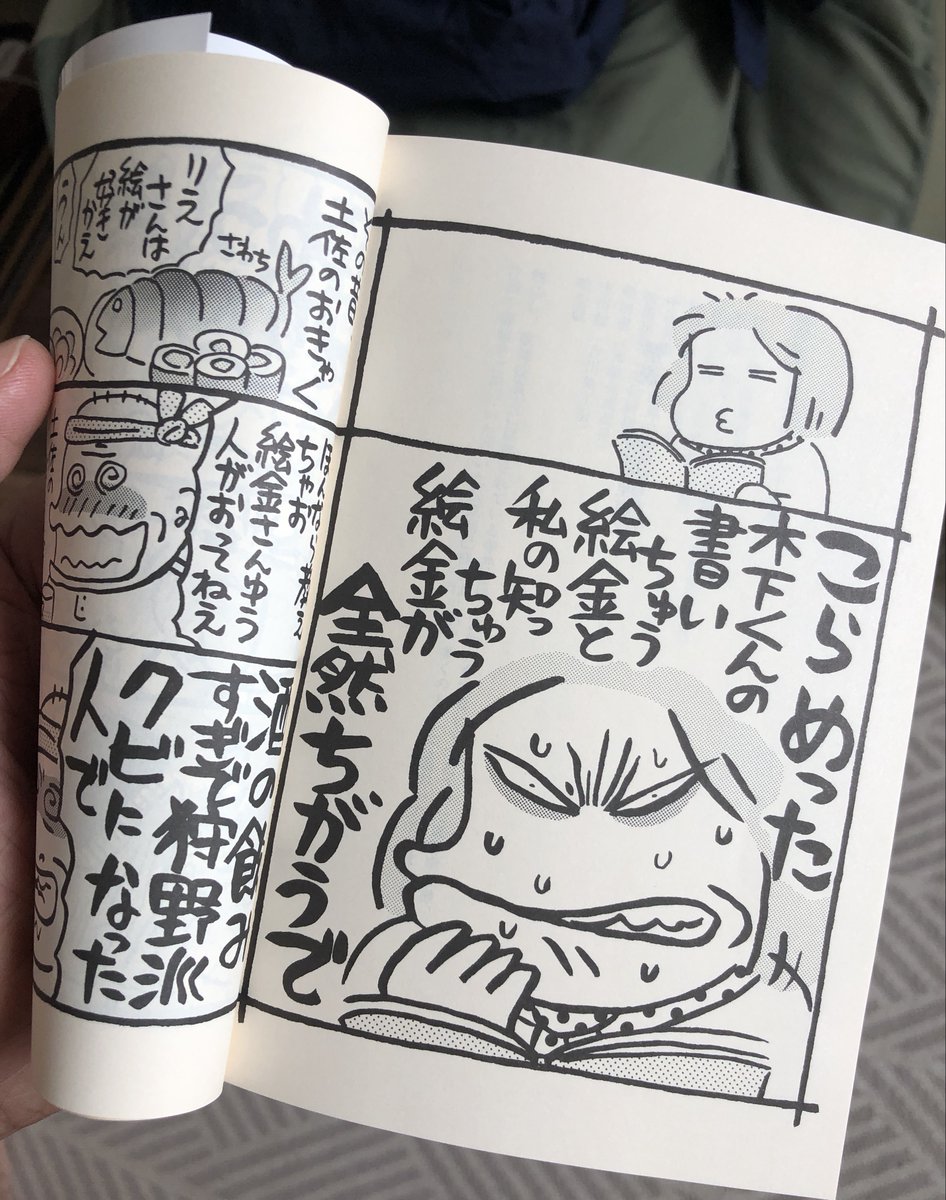 こらめった
木下くんの
書い
ちゅう
絵金と
私の知っ
ちゅう
絵金が
全然ちがうで
土佐のおきゃく
さわち
リえ
さんは
絵が
好き
かえ
ちゃお
絵金さんゆう
人がおってねえ
酒の飲み
すぎで狩野派
クビになった
人で